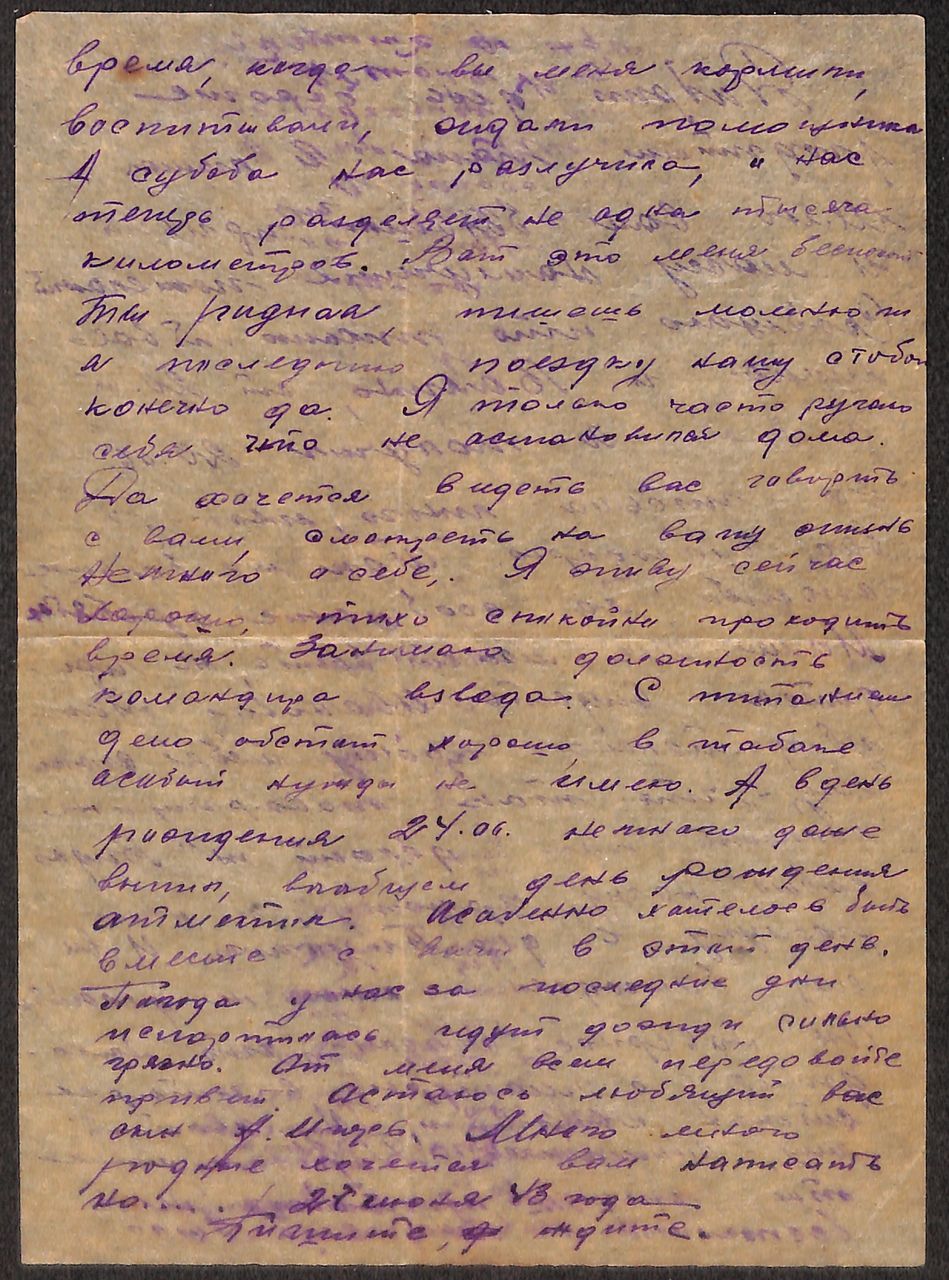 время, когда вы меня кормили,
воспитывали, ожидали помощника
А судьба нас разлучила, и нас
теперь разделяет не одна тысяча
километров. Вот это меня беспокоит
Ты родная пишешь помню ли
я последнюю поездку нашу с тобой
конечно да. Я только часто ругаю
себя что не астановился дома.
Да хочется видеть вас говорить
с вами, смотреть на вашу жизнь
Немного о себе,. Я живу сейчас
хорошо, тихо спокойно проходить
время. Занимаю должность
командира взвода. С питанием
дело обстоит хорошо в табаке
асобый нужды не имею. А в день
рождения 24.06. немного даже
выпил, вообщем день рождения
атметил. Асабенно хателось быть
вместе с вами в этот день.
Пагода у нас за последние дни
испортилась идут дожди сильно
грязно. От меня всем передовайте
привет. Астаюсь любящий вас
сын А. Игорь. Много много
родные хочется вам написать
но.... 27 июня 43 года
Пишите, ждите.